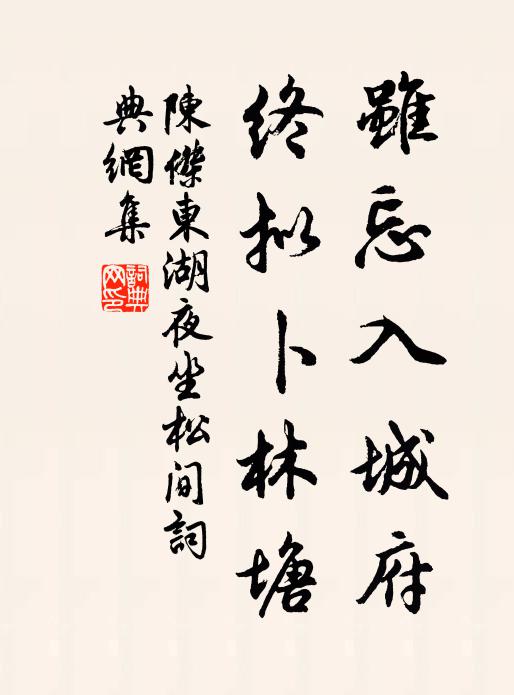 雖忘入城府
終拟卜林塘
陳傑東湖夜坐松间詞
典網集
詞典网印